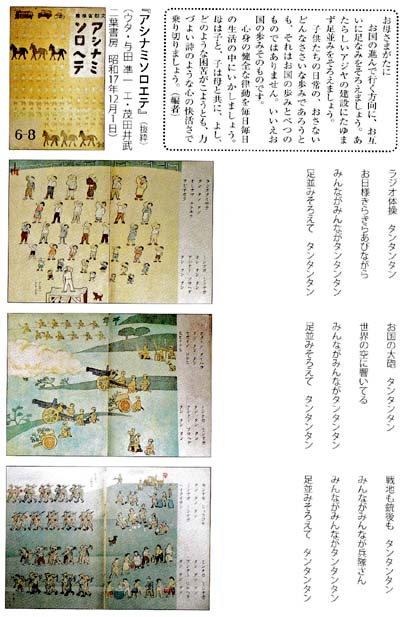 お母さまがたに
お国の進んで行く方向に、お互
いに足なみをそろえましょう。あ
たらしいアジヤの建設にたゆま
ず足並みをそろえましょう。
子供たちの日常の、おさない
どんなささいな歩みであろうと
も、それはお国の歩みとべつの
ものではありません。いいえお
国の歩みそのものです。
心身の健全な律動を毎日毎日
の生活の中にいかしましょう。
母は子と、子は母と共に、よし、
どのような困苦がこようとも、力
づよい詩のような心の快活さで
乗り切りましょう。(編者)
アシナミ
ソロヘテ
6-8
『アシナミソロエテ』(抜粋)
(ウタ・与田準一、エ・茂田井武
二葉書房 昭和17年12月1日)
ラジオ体操 タンタンタン
お日様きらきらあびながら
みんながみんながタンタンタン
足並みそろえて タンタンタン
お国の大砲 タンタンタン
世界の空に響いてる
みんながみんながタンタンタン
足並みそろえて タンタンタン
戦地も銃後も タンタンタン
みんながみんなが兵隊さん
みんながみんながタンタンタン
足並みそろえて タンタンタン